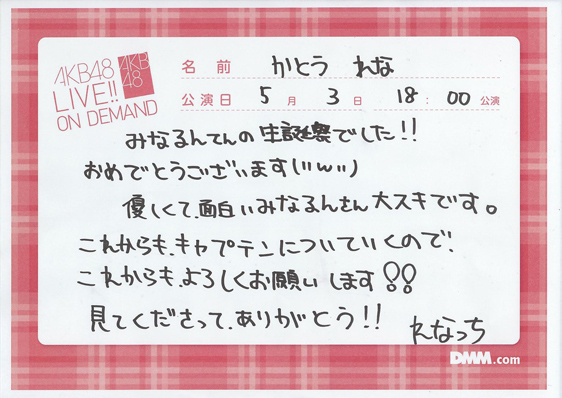 AKB48
LIVE!!
ON DEMAND
AKB
48
名前 かとう れな
公演日 5月 3日 18:00 公演
みなるんてんの生誕祭でした!!
おめでとうございます(''w'')
優しくて、面白いみなるんさん大スキです。
これからも、キャプテンについていくので、
これからも、よろしくお願いします!!
見てくださって、ありがとう!!
れなっち
DMM.com